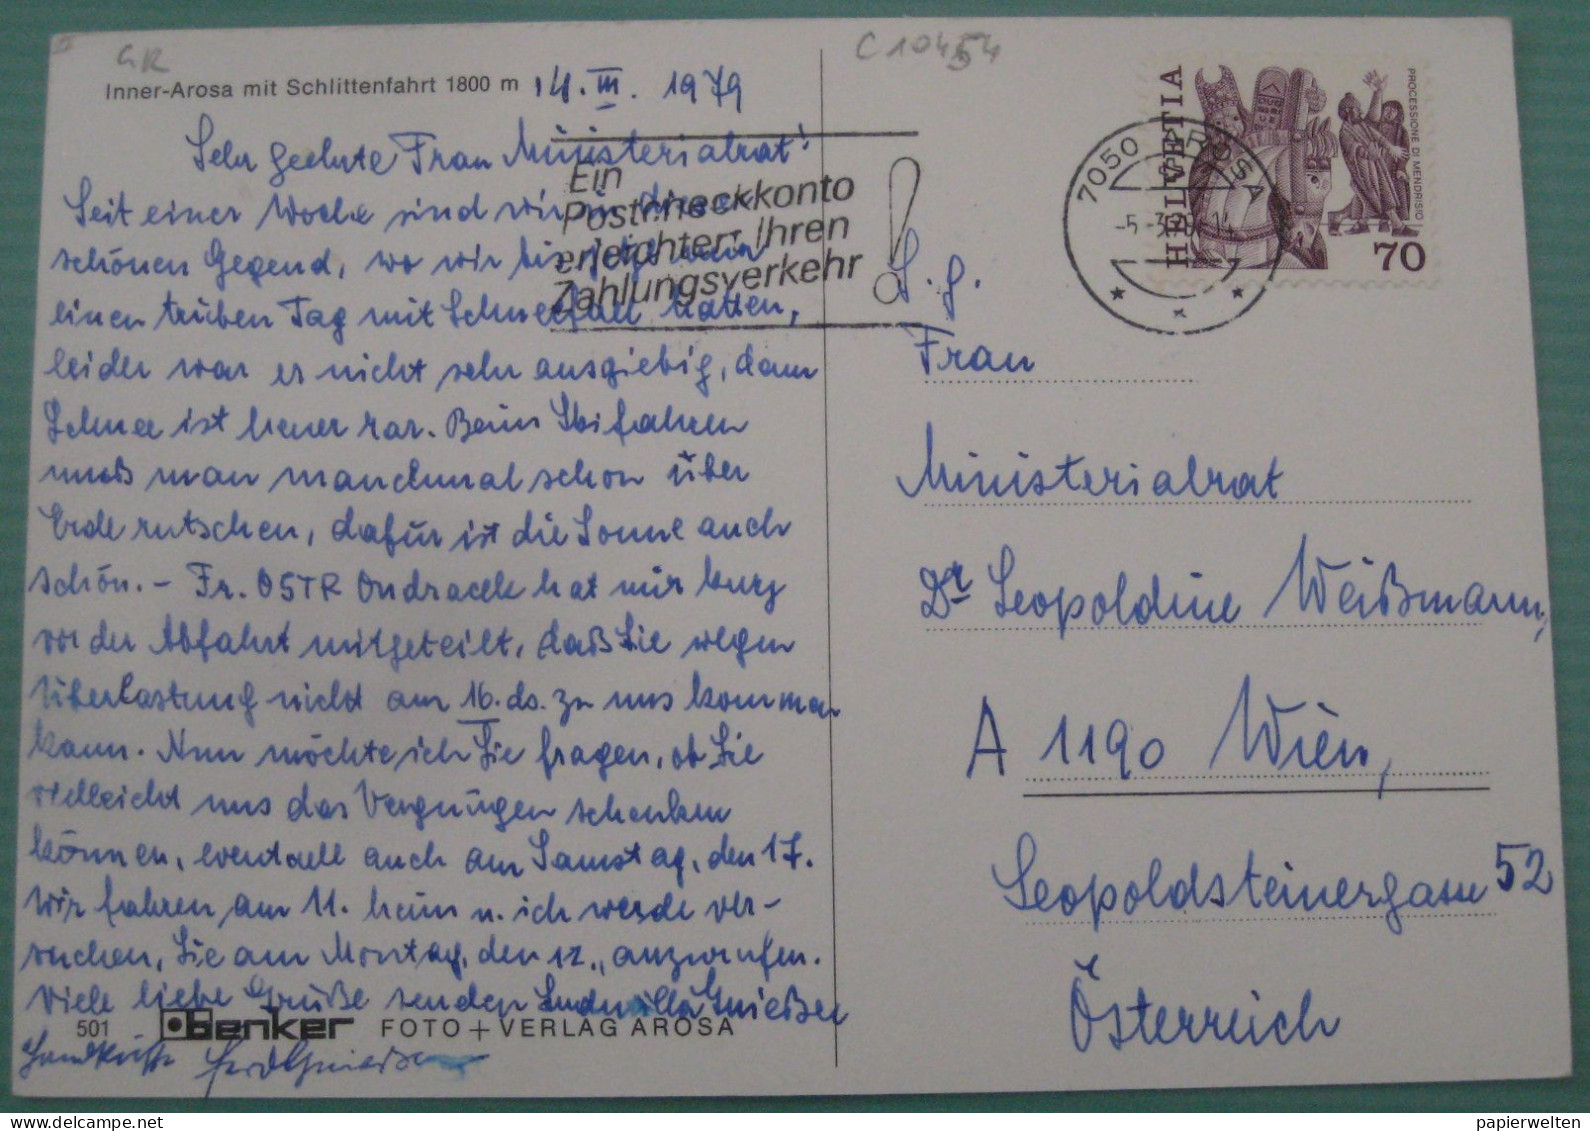 GR
C 10454
Inner-Arosa mit Schlittenfahrt 1800 m
4. III. 1979
Sehr geehrte Frau Ministerialrat!
Seit einer Woche sind wir in dieser
schönen Gegend, wo wir bis jetzt nur
einen trüben Tag mit Schneefall hatten,
leider war er nicht sehr ausgiebig, denn
Schnee ist heuer rar. Beim Skifahren
muß man manchmal schon über
Erde rutschen, dafür ist die Sonne auch
schön. – Fr. OSTR Ondracek hat mir kurz
vor der Abfahrt mitgeteilt, daß Sie wegen
Überlastung nicht am 16. ds. zu uns kommen
kann. Nun möchte ich Sie fragen, ob Sie
vielleicht uns das Vergnügen schenken
können, eventuell auch am Samstag, den 17.
Wir fahren am 11. heim u. ich werde ver-
suchen, Sie am Montag, den 12., anzurufen.
Viele liebe Grüße senden Ludmilla Gnießer
Handküsse Ferd Gnießer
501 benker FOTO + VERLAG AROSA
Ein
Postcheckkonto
erleichtert Ihren
Zahlungsverkehr !
7050 AROSA
-5.-3.79-14
HELVETIA
PROCESSIONE DI MENDRISIO
70
S. g.
Frau
Ministerialrat
Dr Leopoldine Weißmann,
A 1190 Wien,
Leopoldsteinergasse 52
Österreich
papierwelten